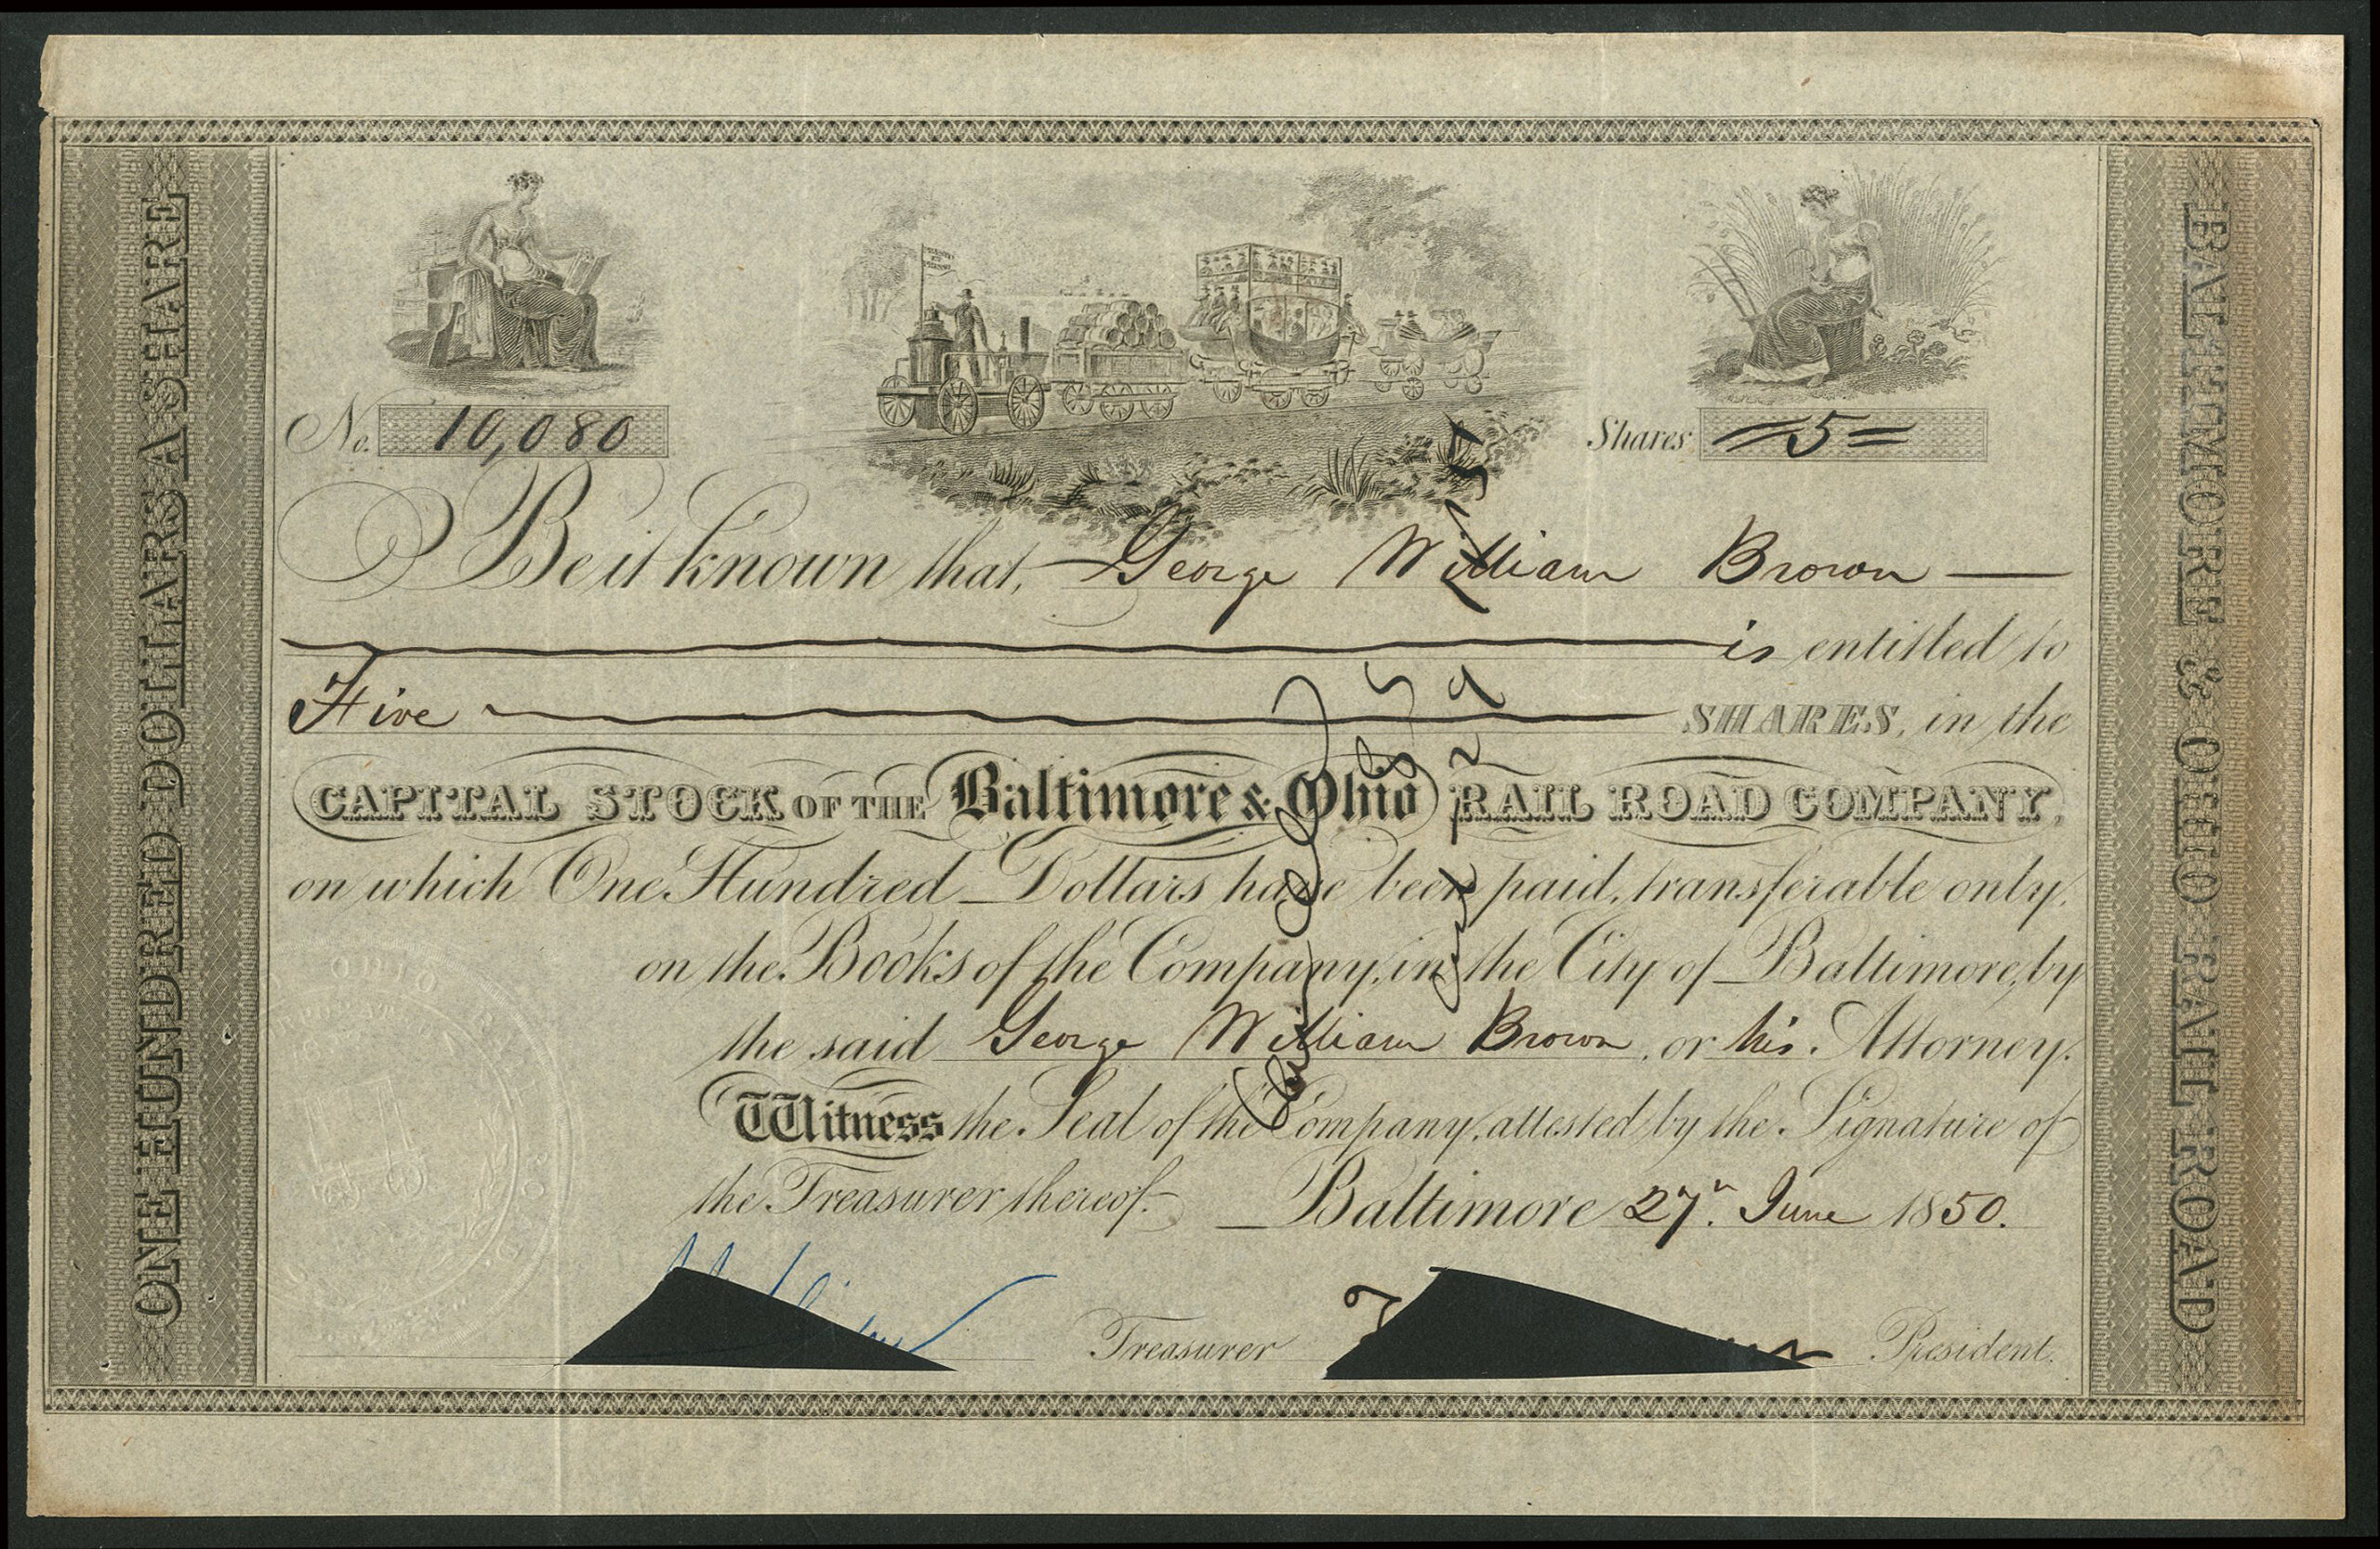 ONE HUNDRED DOLLARS A SHARE
No. 10,080
Shares 5
Be it known that, George William Brown
is entitled to
Five SHARES, in the
CAPITAL STOCK OF THE Baltimore & Ohio RAIL ROAD COMPANY,
on which One Hundred Dollars have been paid, transferable only,
on the Books of the Company, in the City of Baltimore, by
the said George William Brown, or his Attorney.
Witness the Seal of the Company, attested by the Signature of
the Treasurer thereof. Baltimore 27th June 1850.
Treasurer President.
BALTIMORE & OHIO RAIL ROAD
Cancelled
OHIO